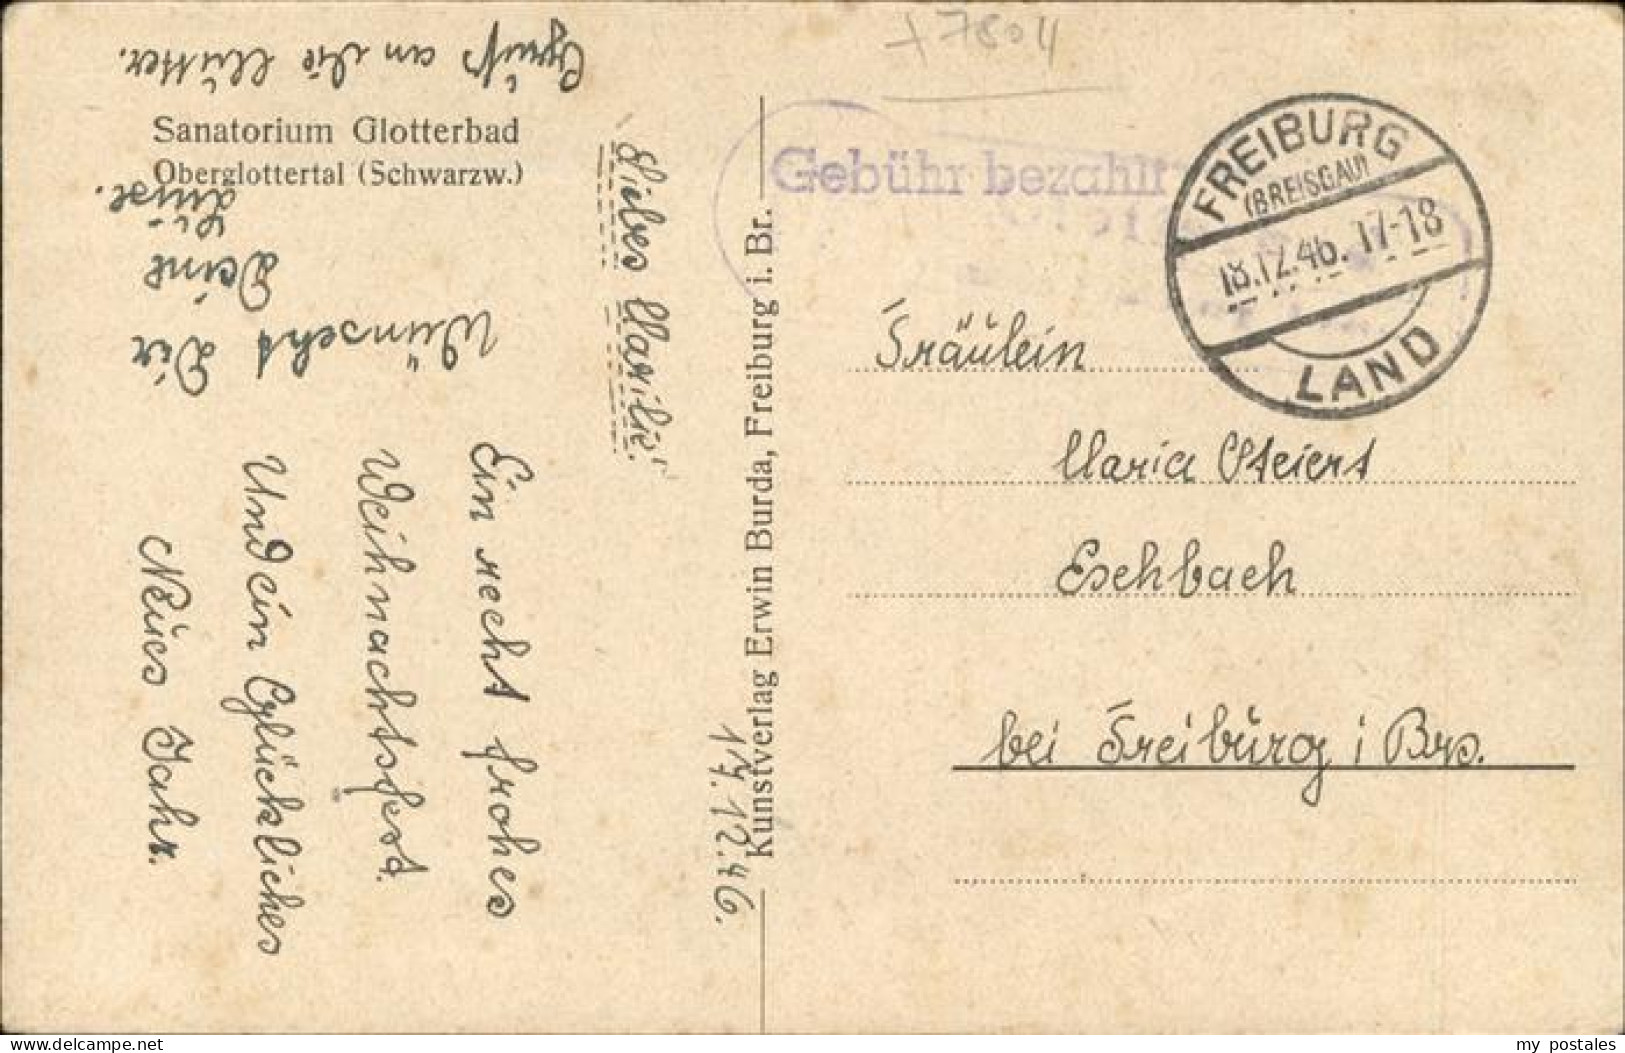 + 7804
Gruß an die Mutter.
Sanatorium Glotterbad
Oberglottertal (Schwarzw.)
17.12.46.
Liebes Marilie.
Ein recht frohes
Weihnachtsfest.
Und ein Glückliches
Neues Jahr.
Wünscht Dir
Deine
Kunstverlag Erwin Burda, Freiburg i. Br.
Gebühr bezahlt
FREIBURG
(BREISGAU)
18.12.46. 17-18
LAND
Fräulein
Maria Steiert
Eschbach
bei Freiburg i Brs.
delcampe.net
my_postales